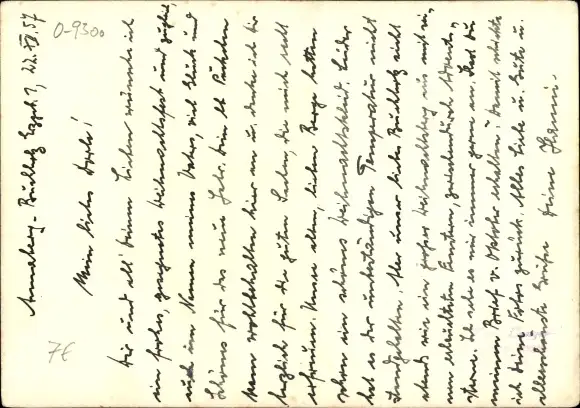 Annaberg-Buchholz Erzgeb. 1, 22. XII. 57
0-9300
Mein liebes Dorle!
Dir und all' Deinen Lieben wünsche ich
ein frohes, gesegnetes Weihnachtsfest und zugleich,
auch im Namen meines Vaters, viel Glück und
Schönes für das neue Jahr. Dein lb. Päckchen
kam wohlbehalten hier an u. danke ich Dir
herzlich für die guten Sachen, die mich sehr
erfreuen. Unsere alten, lieben Berge hatten
schon ein schönes Weihnachtskleid. Leider
hat es der unbeständigen Temperatur nicht
standgehalten. Aber unser liebes Buchholz sieht
abends wie ein großer Weihnachtsberg aus mit sei-
nen erleuchteten Fenstern, zwischendurch Advents-
sterne. Ich sehe es mir immer gerne an. Hast Du
meinen Brief v. Oktober erhalten? Damit schickte
ich Deine Fotos zurück. Alles Liebe u. Gute u.
allerschönste Grüße Deine Hanni.
7€